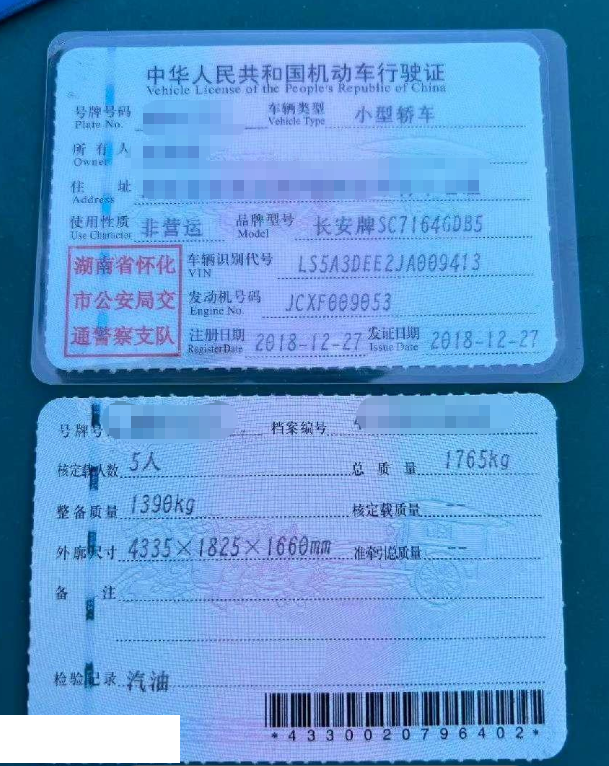 中华人民共和国机动车行驶证
Vehicle License of the People's Republic of China
号牌号码 车辆类型 小型轿车
Plate No. Vehicle Type
所有人
Owner
住址
Address
使用性质 非营运 品牌型号 长安牌SC7164GDB5
Use Character Model
湖南省怀化 车辆识别代号 LS5A3DEE2JA009413
VIN
市公安局交 发动机号码 JCXF009053
Engine No.
通警察支队 注册日期 2018-12-27 发证日期 2018-12-27
Register Date Issue Date
号牌号 档案编号
核定载人数 5人 总质量 1765kg
整备质量 1390kg 核定载质量 --
外廓尺寸 4335×1825×1660mm 准牵引总质量 --
备注
检验记录 汽油
*4330020796402*